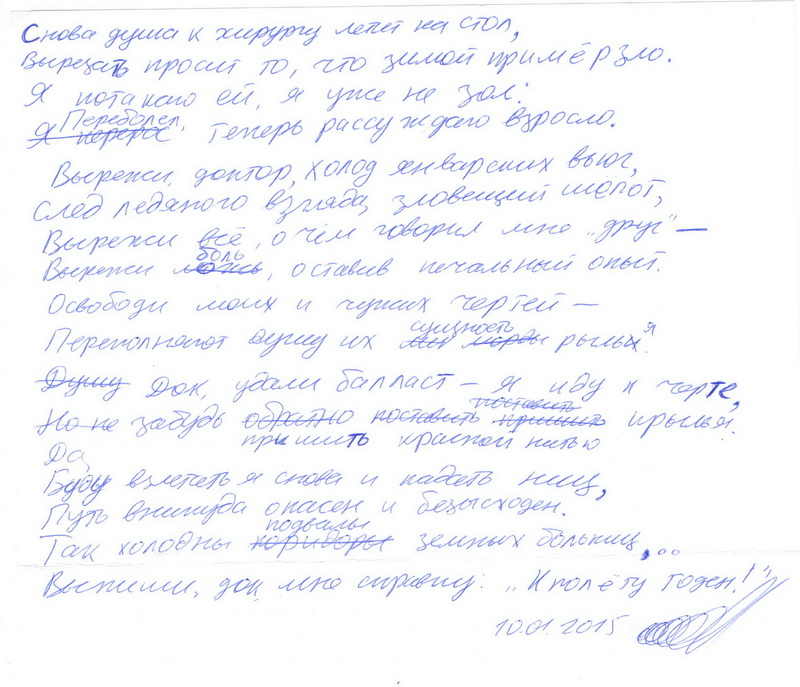 Снова душа к хирургу летит на стол,
Вырезать просит то, что зимой примёрзло.
Я потакаю ей, я уже не зол:
Переболел.
Я перерос Теперь рассуждаю взросло.
Вырежи, доктор, холод январских вьюг,
След ледяного взгляда, зловещий шопот,
Вырежи всё, о чём говорил мне „друг" —
боль
Вырежи ложь, оставив печальный опыт.
Освободи моих и чужих чертей —
сущность
Переполняют душу их морды рылья.
Душу Док, удали балласт — я иду к черте,
поставить
Но не забудь обратно поставить пришить крылья.
пришить красной нитью
Да,
Буду взлетать я снова и падать ниц,
Путь в никуда опасен и безысходен.
подвалы
Так холодны коридоры земных больниц,...
Выпиши, док, мне справку: „К полёту годен!"
10.01.2015